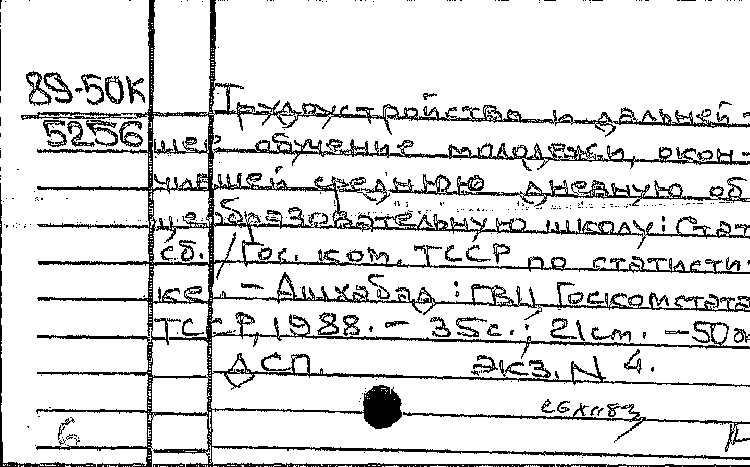 89-50К
5256
Трудоустройство и дальней-
шее обучение молодежи, окон-
чившей среднюю дневную об
щеобразовательную школу: Стат
сб. / Гос. ком. ТССР по статисти-
ке. - Ашхабад : ГВЦ Госкомстата
ТССР, 1988. - 35с.; 21см. - 50э
ДСП. Экз. N 4.
6